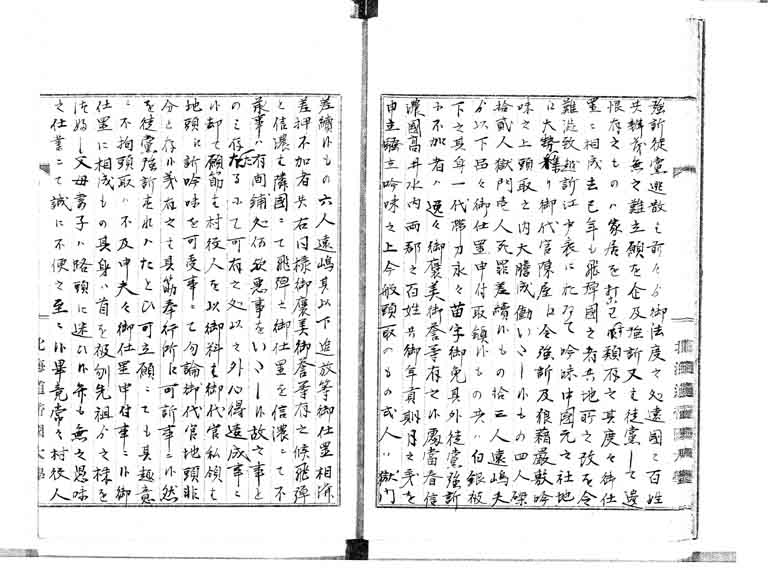 強訴徒党逃散も前々より御法度之処遠国之百姓
共弁義無之難立願を企及強訴又ハ徒党して遺
恨存之ものハ家居を打こわし候類存之其度々御仕
置ニ相成去巳年も飛騨国之者共地所之改を令
難渋致越訴江戸表ニおゐて吟味中国元之社地
江大勢集り御代官陣屋江令強訴及狼藉厳敷吟
味之上頭取之内大膽成働いたし候もの四人磔
拾弐人獄門壱人死罪差続候もの拾三人遠嶋夫
より以下品々御仕置申付取鎮候もの共ハ白銀被
下之其身一代帯刀永々苗字御免其外徒党強訴
江不加者ハ逸々御褒美御誉等存之候処当春信
濃国高井水内両郡之百姓共御年貢期月之義を
申立騒立吟味之上今般頭取のもの弐人ハ獄門
差続候もの六人遠嶋其以下追放等御仕置相済
差押不加者共右同様御褒美御誉等存之候飛騨
と信濃も隣国ニて飛騨之御仕置を信濃ニて不
承事ハ有間鋪処何欤悪事をいたし候故之事と
のミ存たるニて可有之処以之外心得違成事ニ
候却て願筋も村役人を以御料も御代官私領も
地頭江新吟味を可受事ニて勿論御代官地頭非
分と存候義存之も其筋奉行所江可訴事ニ候然
を徒党強訴企候ハたとひ可立願ニても其趣意
ニ不拘頭取ハ不及申夫々御仕置申付事ニ候御
仕置ニ相成もの其身ハ首を被刎先祖より之株を
つぶし父母妻子ハ路頭に迷ひ候弁も無之愚昧
之仕業ニて誠に不便之至ニ候畢竟常々村役人